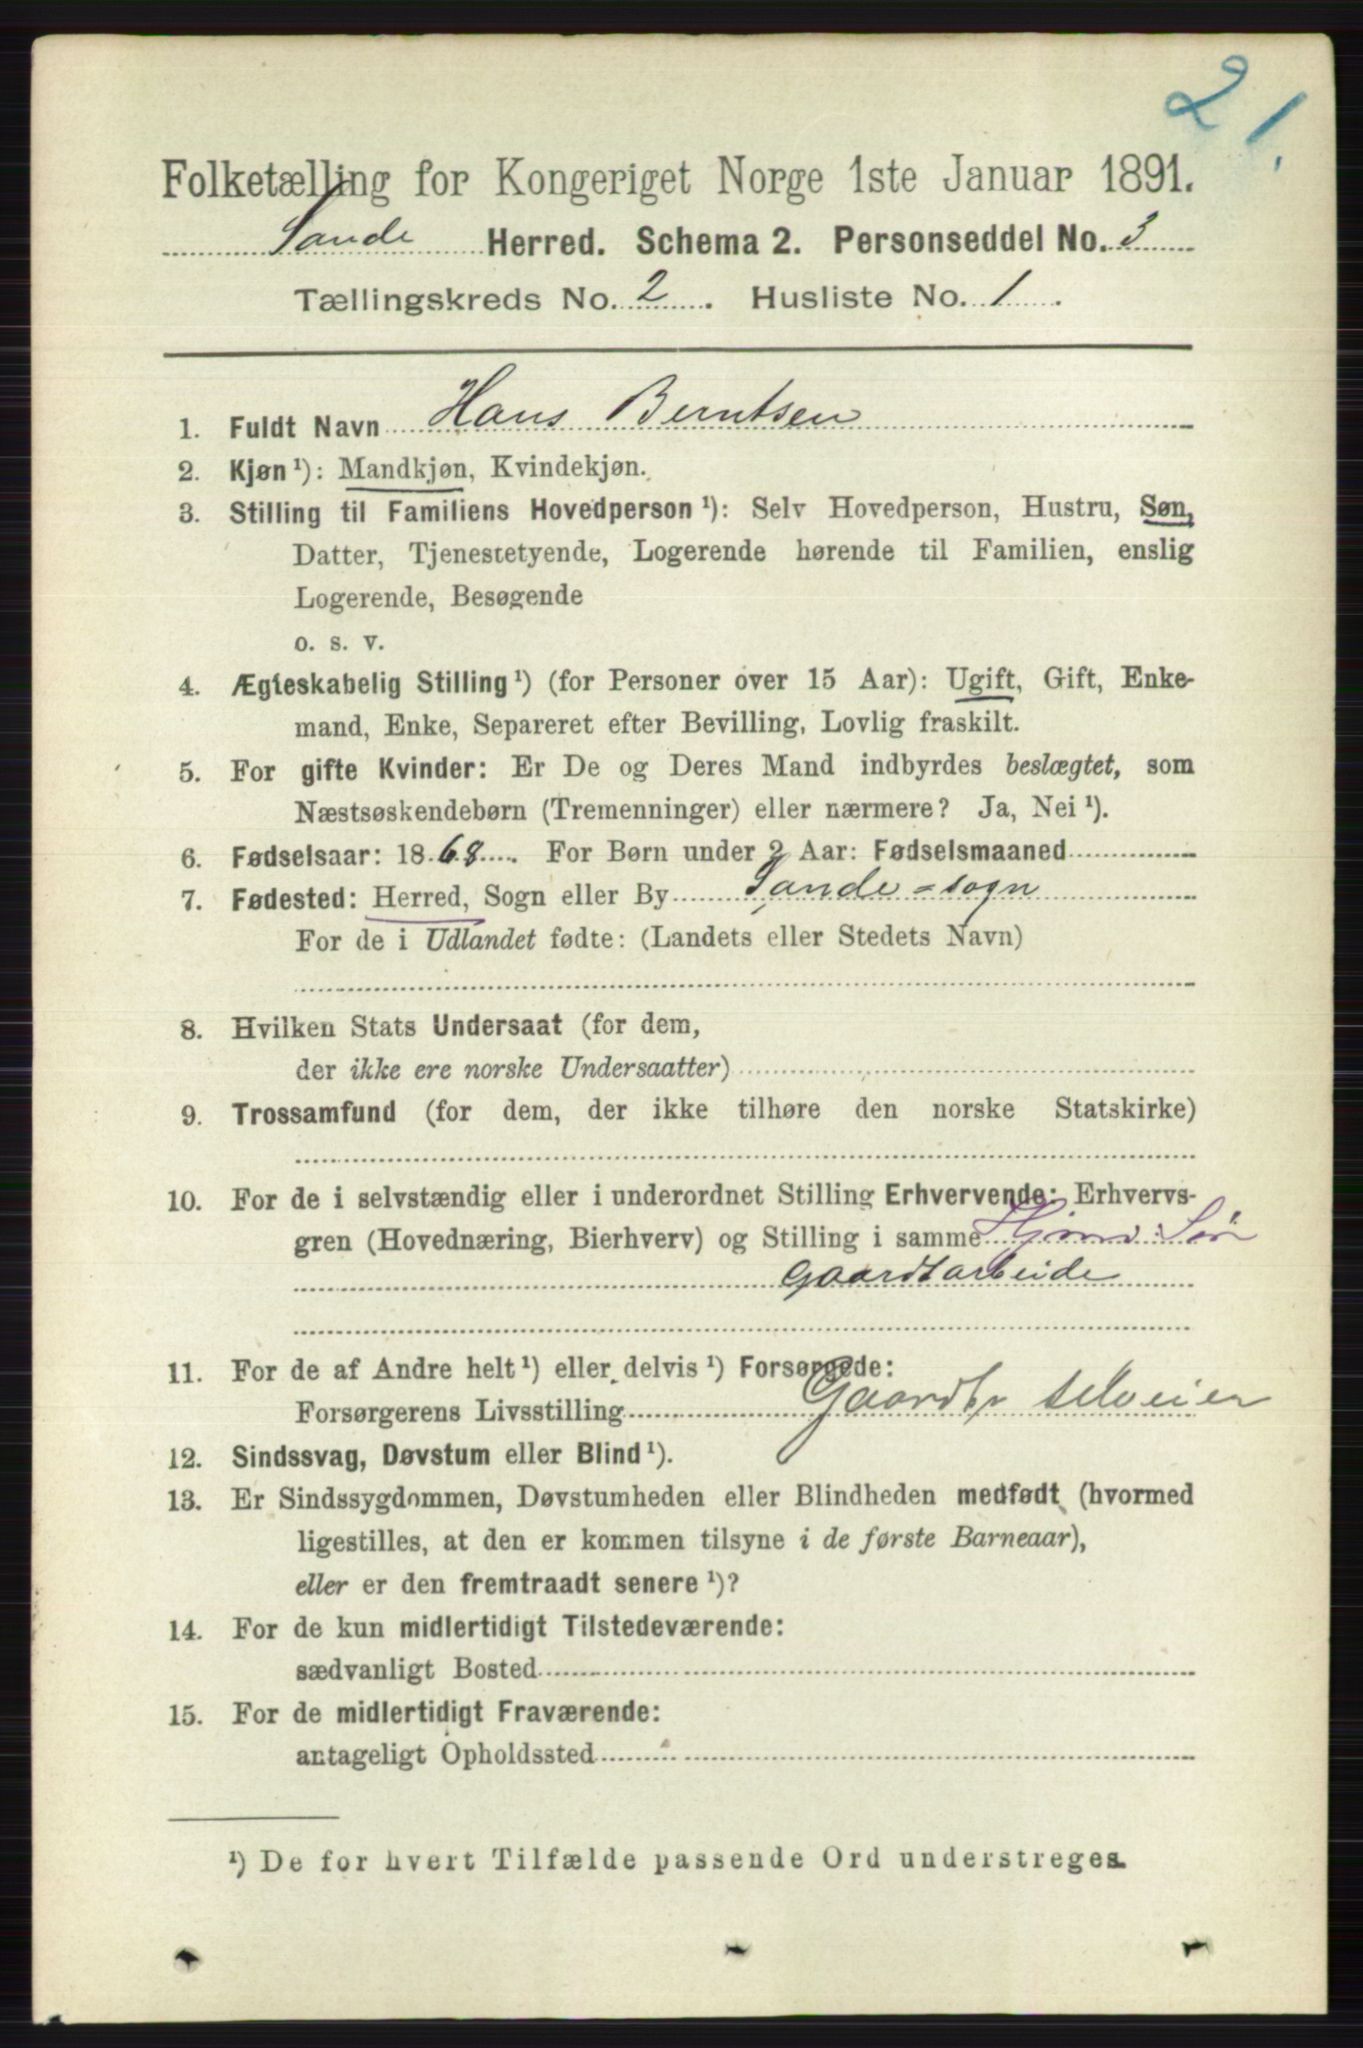 21.
Folketælling for Kongeriget Norge 1ste Januar 1891.
Sande Herred. Schema 2. Personseddel No. 3
Tællingskreds No. 2. Husliste No. 1.
1. Fuldt Navn Hans Berntsen
2. Kjøn ¹): Mandkjøn, Kvindekjøn.
3. Stilling til Familiens Hovedperson ¹): Selv Hovedperson, Hustru, Søn,
Datter, Tjenestetyende, Logerende hørende til Familien, enslig
Logerende, Besøgende
o. s. v.
4. Ægteskabelig Stilling ¹) (for Personer over 15 Aar): Ugift, Gift, Enke-
mand, Enke, Separeret efter Bevilling, Lovlig fraskilt.
5. For gifte Kvinder: Er De og Deres Mand indbyrdes beslægtet, som
Næstsøskendebørn (Tremenninger) eller nærmere? Ja, Nei ¹).
6. Fødselsaar: 1868. For Børn under 2 Aar: Fødselsmaaned
7. Fødested: Herred, Sogn eller By Sande=sogn
For de i Udlandet fødte: (Landets eller Stedets Navn)
8. Hvilken Stats Undersaat (for dem,
der ikke ere norske Undersaatter)
9. Trossamfund (for dem, der ikke tilhøre den norske Statskirke)
10. For de i selvstændig eller i underordnet Stilling Erhvervende: Erhvervs-
gren (Hovednæring, Bierhverv) og Stilling i samme Søn
Gaardtarbeide
11. For de af Andre helt ¹) eller delvis ¹) Forsørgede:
Forsørgerens Livsstilling Gaardbr selveier
12. Sindssvag, Døvstum eller Blind ¹).
13. Er Sindssygdommen, Døvstumheden eller Blindheden medfødt (hvormed
ligestilles, at den er kommen tilsyne i de første Barneaar),
eller er den fremtraadt senere ¹)?
14. For de kun midlertidigt Tilstedeværende:
sædvanligt Bosted
15. For de midlertidigt Fraværende:
antageligt Opholdssted
¹) De for hvert Tilfælde passende Ord understreges.